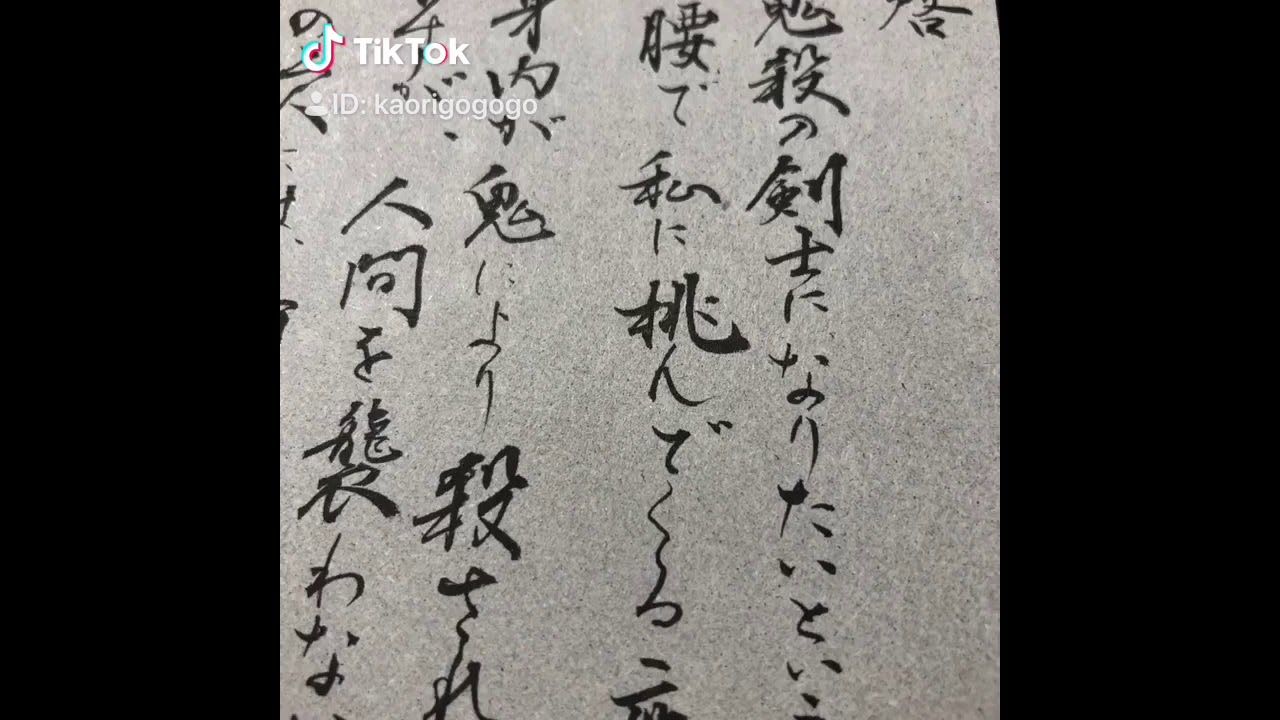 鬼殺の剣士になりたいという
腰で私に挑んでくる
身内が鬼により殺され
ますが、人間を襲わない
の二人には、
TikTok
ID: kaorigogogo